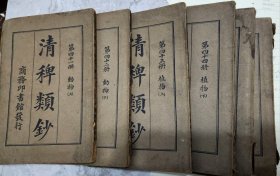 清稗類鈔
第四十一冊 動物(上)
商務印書館發行
第四十二冊 動物(下)
清稗類鈔
第四十三冊 植物(上)
第四十四冊 植物(下)